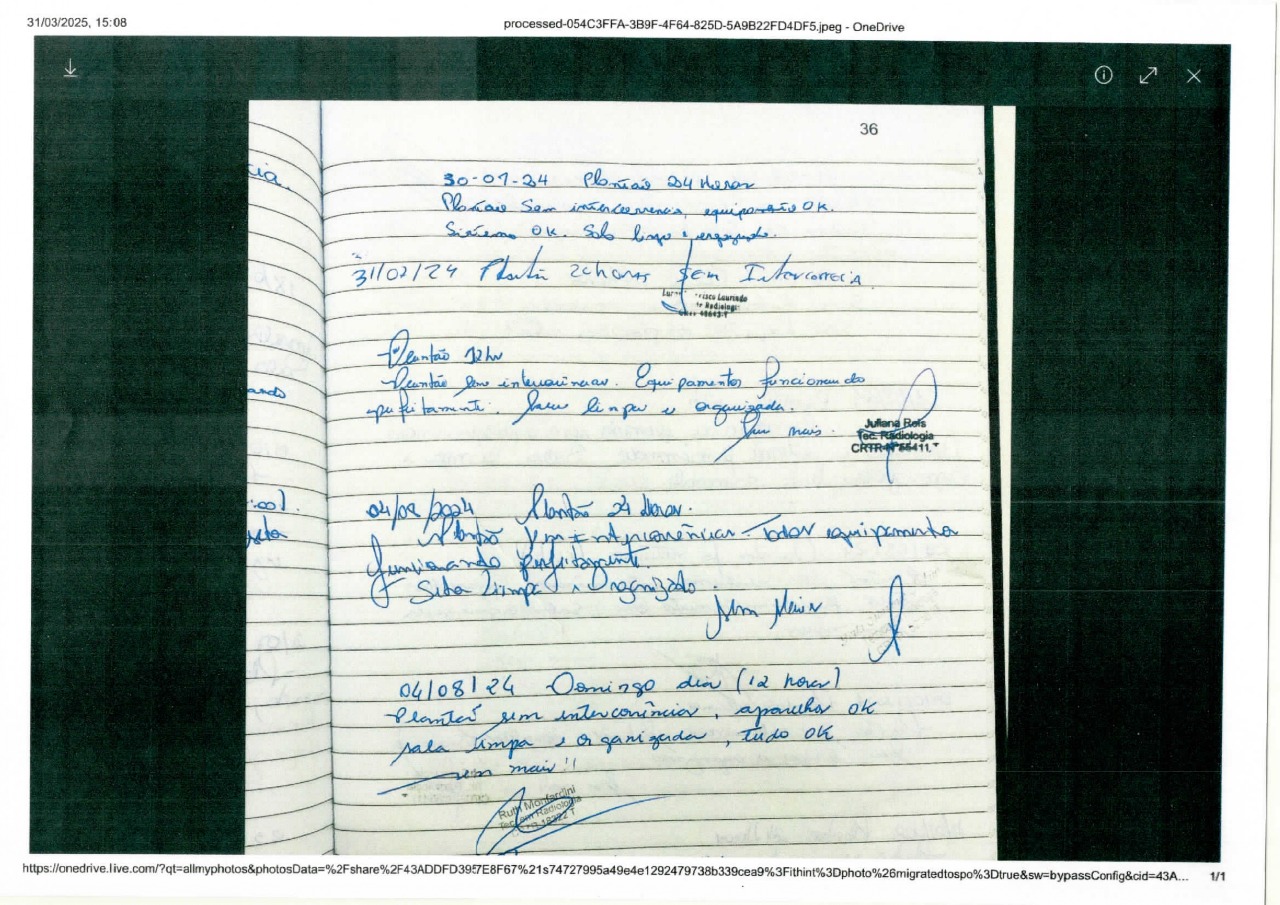 31/03/2025, 15:08
processed-054C3FFA-3B9F-4F64-825D-5A9B22FD4DF5.jpeg - OneDrive
36
30-07-24 Plantão 24 Horas
Plantão Sem intercorrencia, equipamento OK.
Sistema OK. Sala limpa e organizada.
31/07/24 Plantão 24horas Sem Intercorrecia
Laurindo
Radiologia
Plantão 12hr
Plantão sem intercorrências. Equipamentos funcionando
perfeitamente. limpa e organizada.
Sem mais.
Juliana Reis
Tec. Radiologia
CRTR Nº 55411
04/08/2024 Plantão 24 Horas.
Plantão Sem Intercorrências - Todos equipamentos
funcionando perfeitamente.
Setor Limpo e Organizado.
Sem Mais
04/08/24 Domingo dia (12 horas)
Plantão sem intercorrência, aparelhos OK
sala limpa e organizada, tudo OK
sem mais!!
Ruth Monfardini
Tec. em Radiologia
https://onedrive.live.com/?qt=allmyphotos&photosData=%2Fshare%2F43ADDFD3957E8F67%21s74727995a49e4e1292479738b339cea9%3Fithint%3Dphoto%26migratedtospo%3Dtrue&sw=bypassConfig&cid=43A...
1/1